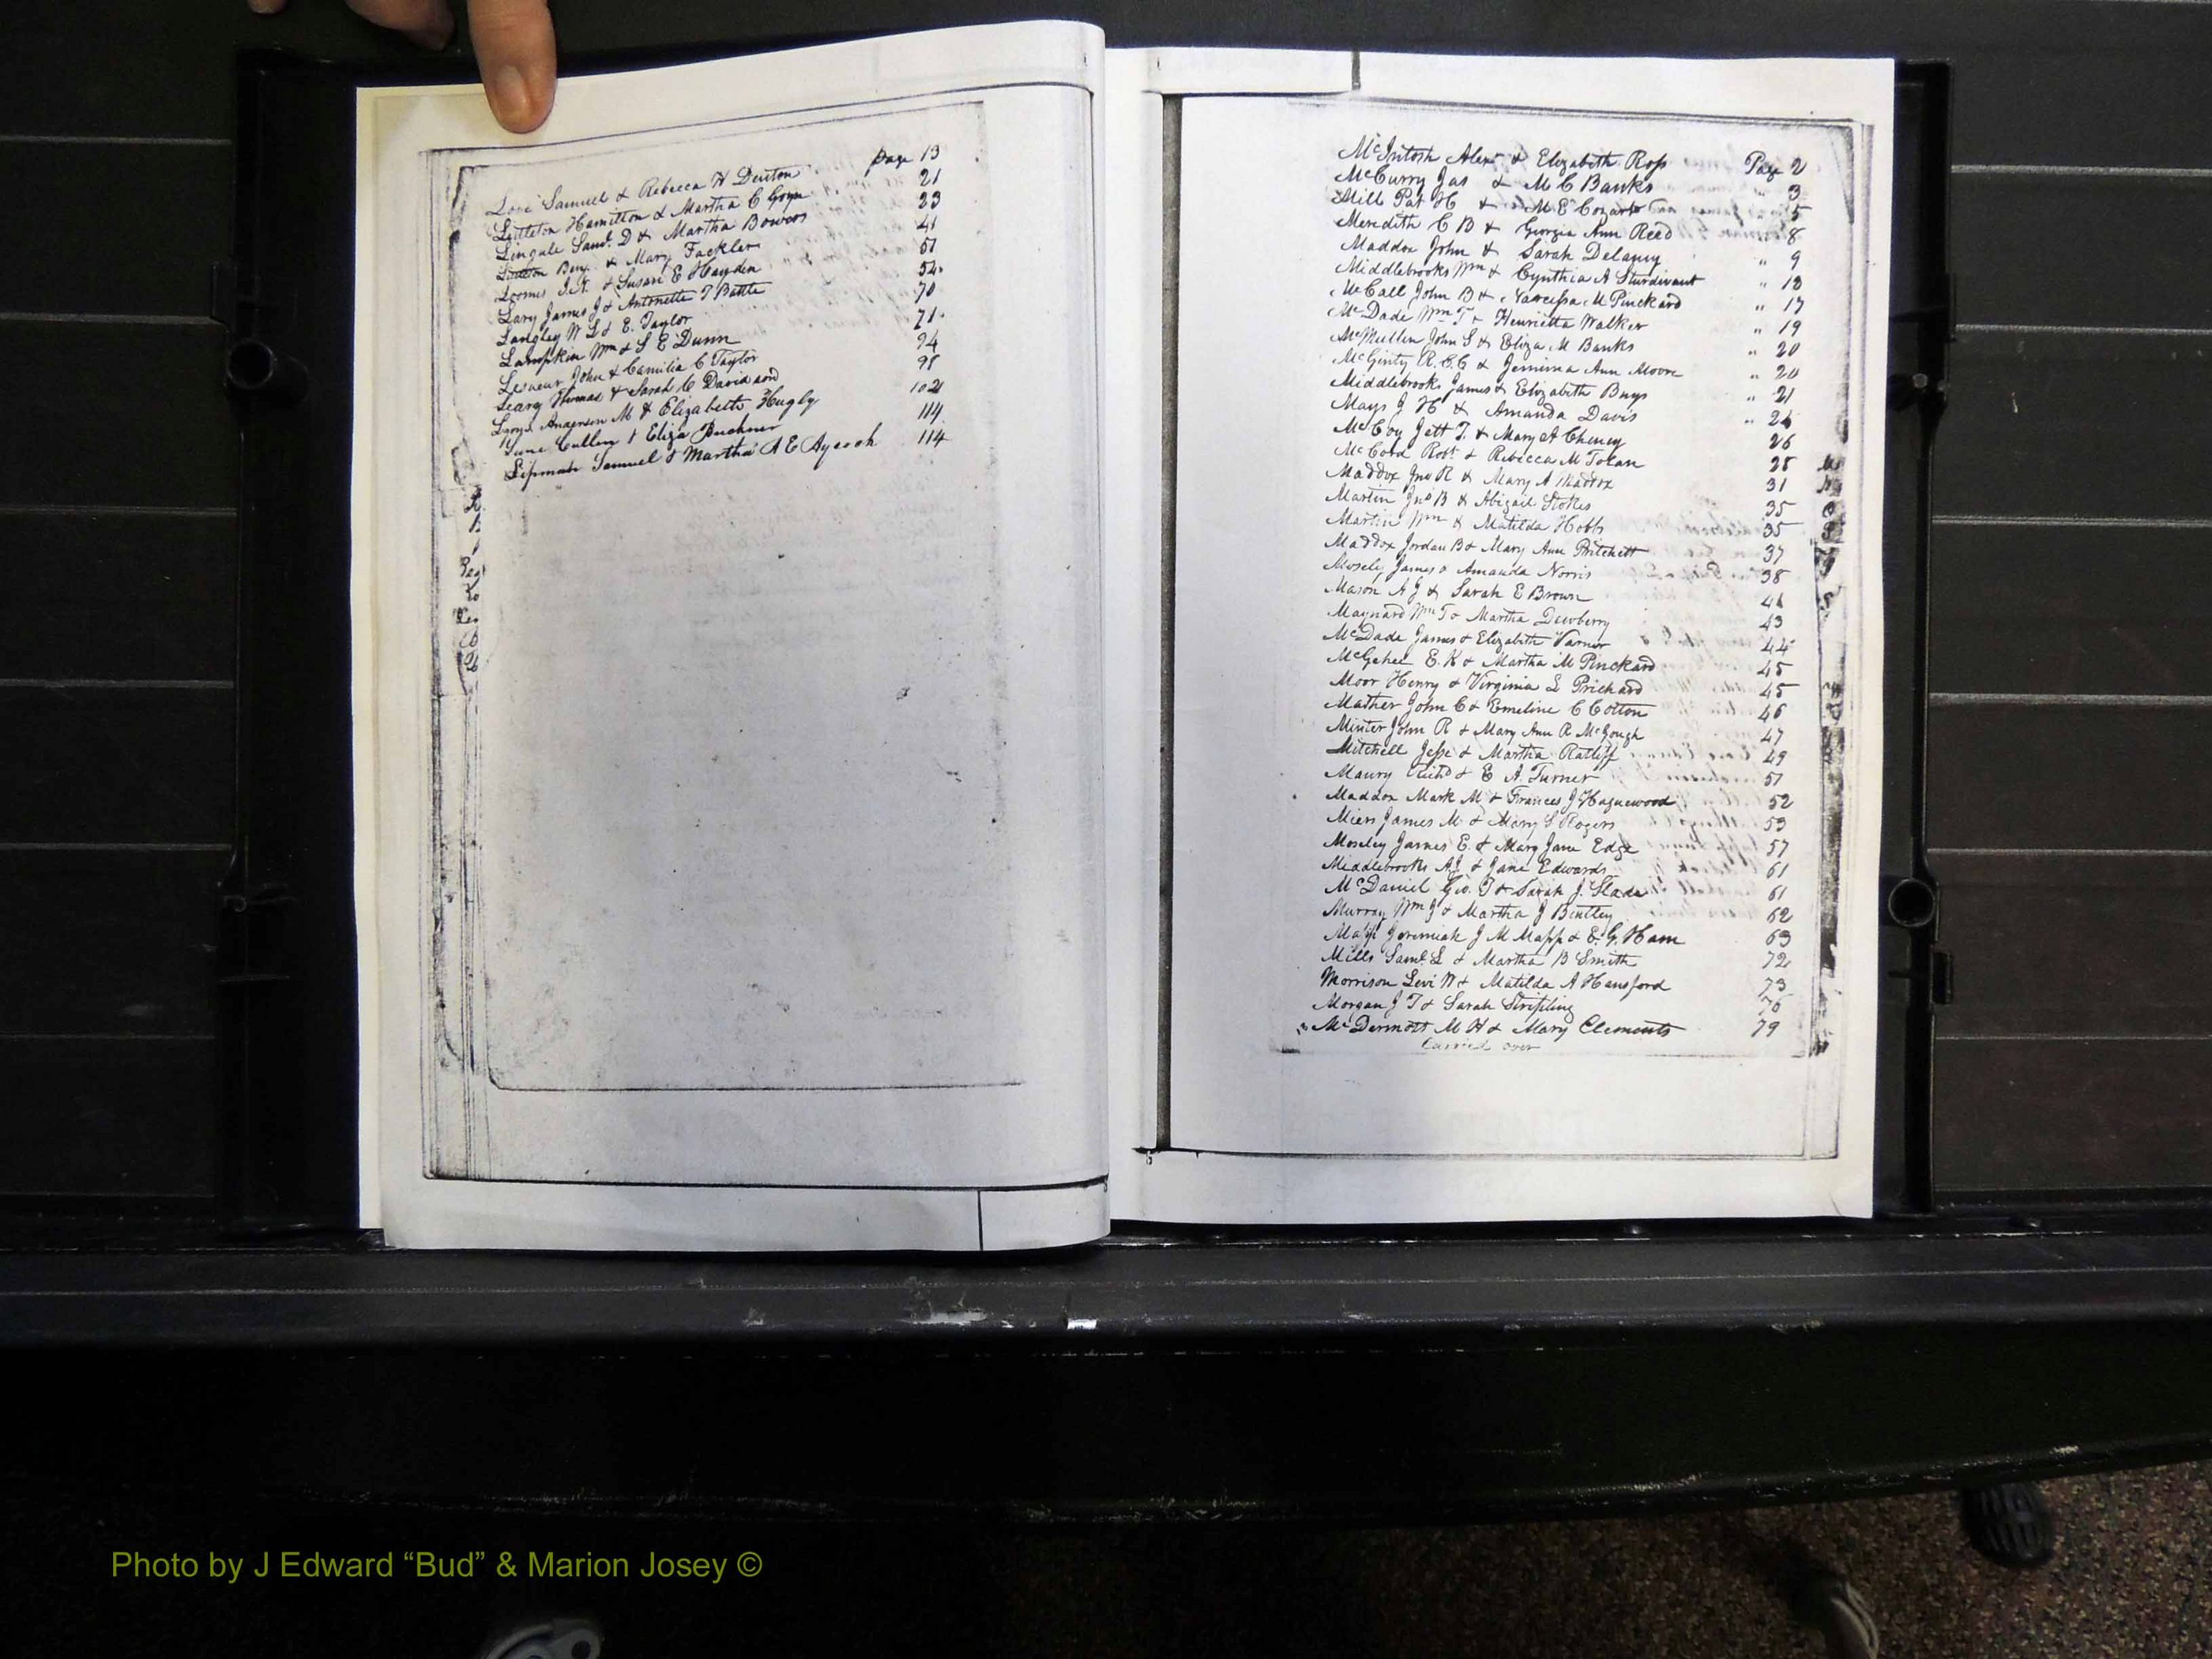 page 13
Love Samuel & Rebecca H Denton
Littleton Hamilton & Martha C Goyn 21
Lingale Saml. D & Martha Bowers 23
Benj. & Mary Fackler 41
Loomis I. N. & Susan E Hayden 51
Lary James J & Antonette T Battle 54
Langley W S & E. Taylor 70
Lampkin Wm & S E Dunn 71
Lesueur John & Camilia C Taylor 94
Leary Thomas & Sarah C Davidson 98
Lyons Anderson M & Elizabeth Hugly 102
Cullen & Eliza Buckner 114
Lipman Samuel & Martha A E Aycock 114
McIntosh Alexr & Elizabeth Ross Page 2
McCurry Jas & M C Banks 3
Mill Pat H & M. E Cozart 5
Meredith C B & Georgia Ann Reed 8
Maddox John & Sarah Delaney " 9
Middlebrooks Wm & Cynthia A Sturdivant " 13
McCall John B & Narcissa M Pinckard " 17
McDade Wm T & Henrietta Walker " 19
McMullen John S & Eliza M Banks " 20
McGinty R. C. C & Jemima Ann Moore " 20
Middlebrooks James & Elizabeth Buys " 21
Mays J H & Amanda Davis " 25
McCoy Jett T. & Mary A Cheney 26
McCord Robt & Rebecca M Tolan 28
Maddox Jno R & Mary A Maddox 31
Martin Jno B & Abigail Stokes 35
Martin Wm & Matilda Hobbs 35
Maddox Jordan B & Mary Ann Pritchett 37
Mosely James & Amanda Norris 38
Mason A J & Sarah E Brown 41
Maynard Wm T & Martha Dewberry 43
McDade James & Elizabeth Varner 44
McGehee E. K & Martha M Pinckard 45
Moor Henry & Virginia L Prichard 45
Mather John C & Emeline C Cotton 46
Minter John R & Mary Ann R McGough 47
Mitchell Jesse & Martha Ratliff 49
Maury Richd & E A. Turner 51
Maddox Mark M & Frances J Haguewood 52
Miers James M & Mary S Rogers 53
Moseley James E. & Mary Jane Edge 57
Meddlebrooks A J & Jane Edwards 61
McDaniel Geo. T & Sarah J. Slade 61
Murray Wm J & Martha J Bentley 62
Jeremiah J M Mapp & E. G. Ham 63
Mills Saml. L & Martha B Smith 72
Morrison Levi W & Matilda A Hansford 73
Morgan J T & Sarah Stripling 76
McDermott M H & Mary Clements 79
Carried over
Photo by J Edward “Bud” & Marion Josey ©